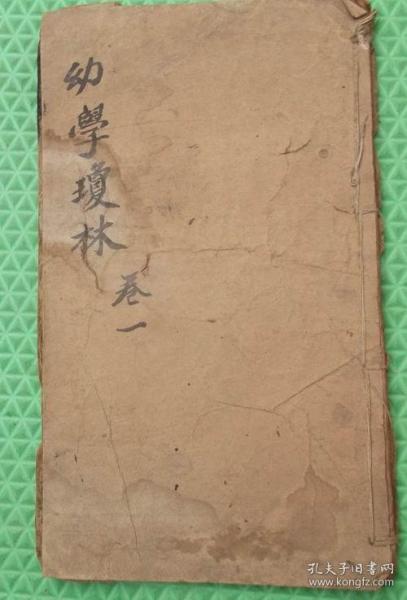 幼學瓊林
卷一
孔夫子旧书网